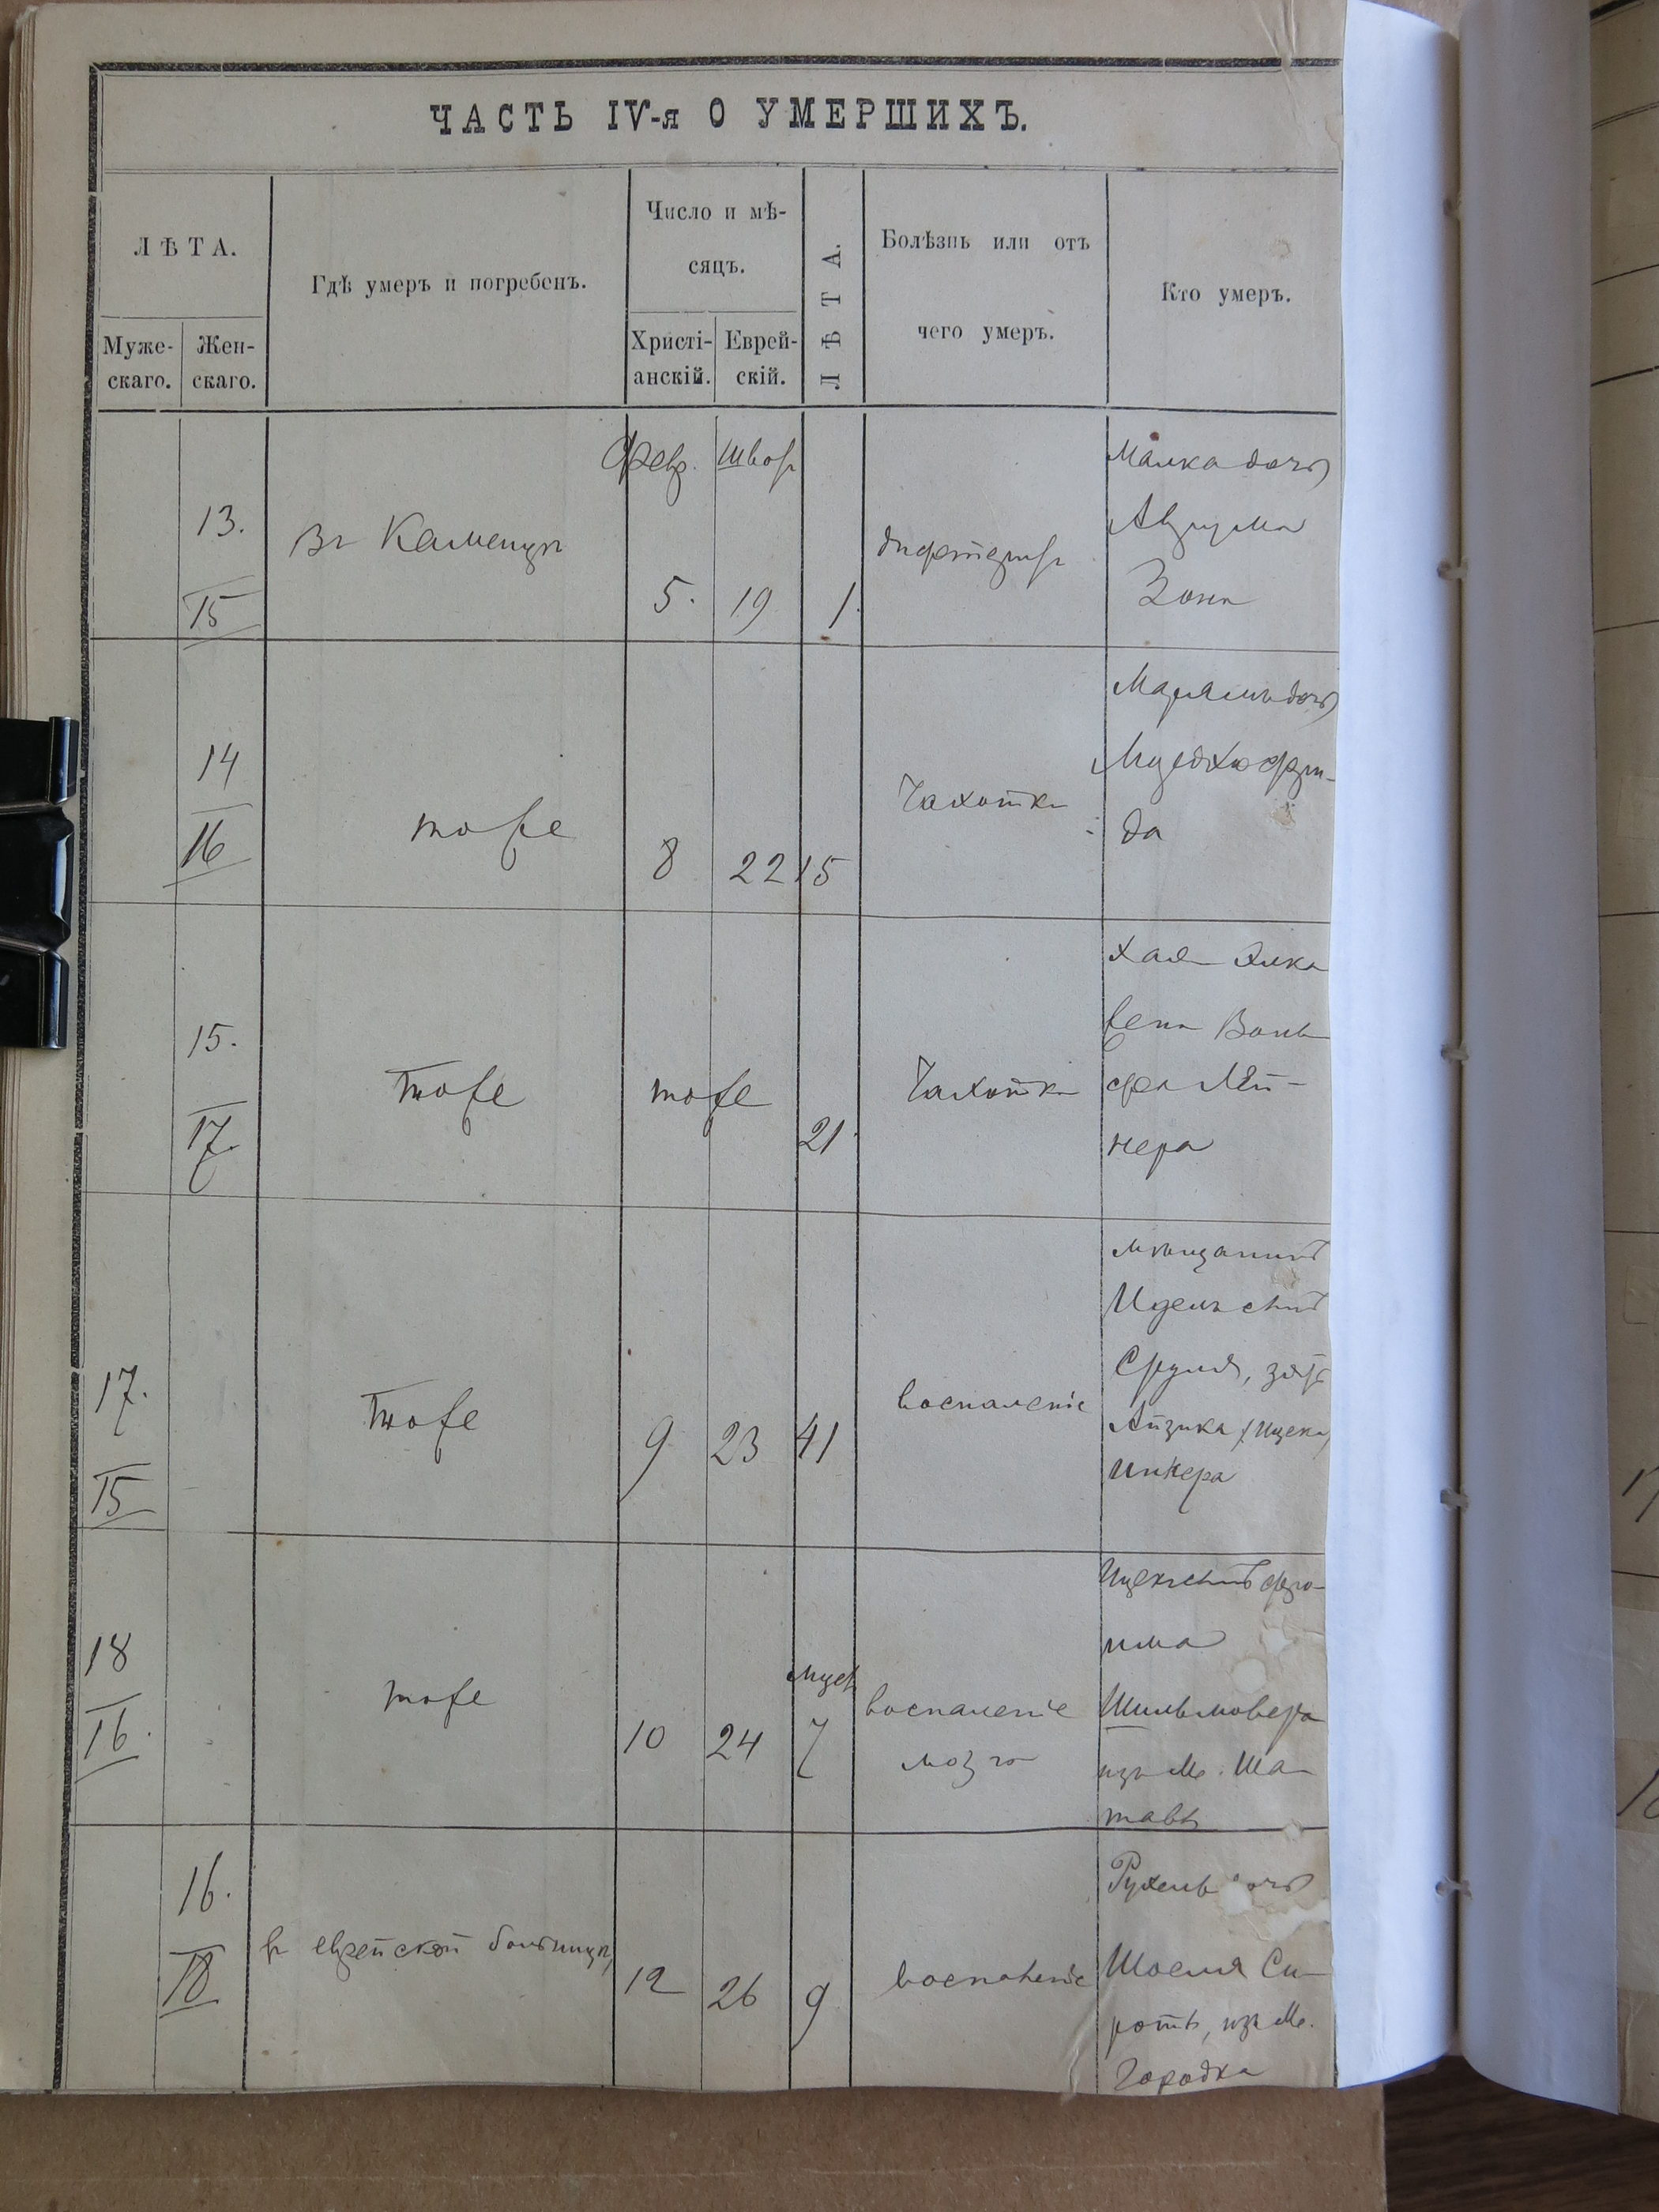 ЧАСТЬ IV-я О УМЕРШИХЪ.
ЛѢТА.
Муже-
скаго.
Жен-
скаго.
Гдѣ умеръ и погребенъ.
Число и мѣ-
сяцъ.
Христі-
анскій.
Еврей-
скій.
ЛѢТА.
Болѣзнь или отъ
чего умеръ.
Кто умеръ.
Февр. Шват
13.
15
Въ Каменцѣ
5. 19 1.
дифтеритъ
Малка дочь
Аврума
Зона
14
16
тоже
8 22 15
Чахотка
Маріямъ дочь
да
15.
17.
тоже
тоже
21.
Чахотка
Хая
жена Воль
фа Лей-
нера
17.
15
тоже
9 23 41
воспаленіе
мѣщанинъ
сынъ
Сруля, зять
Айзика (Ицека)
Инкера
18
16.
тоже
10 24
мѣсяц.
7
воспаленіе
мозга
Ицекъ сынъ Фро-
има
Шильмовера
изъ м. Ша-
тавы
16.
18
въ еврейской больницѣ
12 26 9
воспаленіе
Рухель дочь
Шоеля Си-
роты, изъ м.
Городка